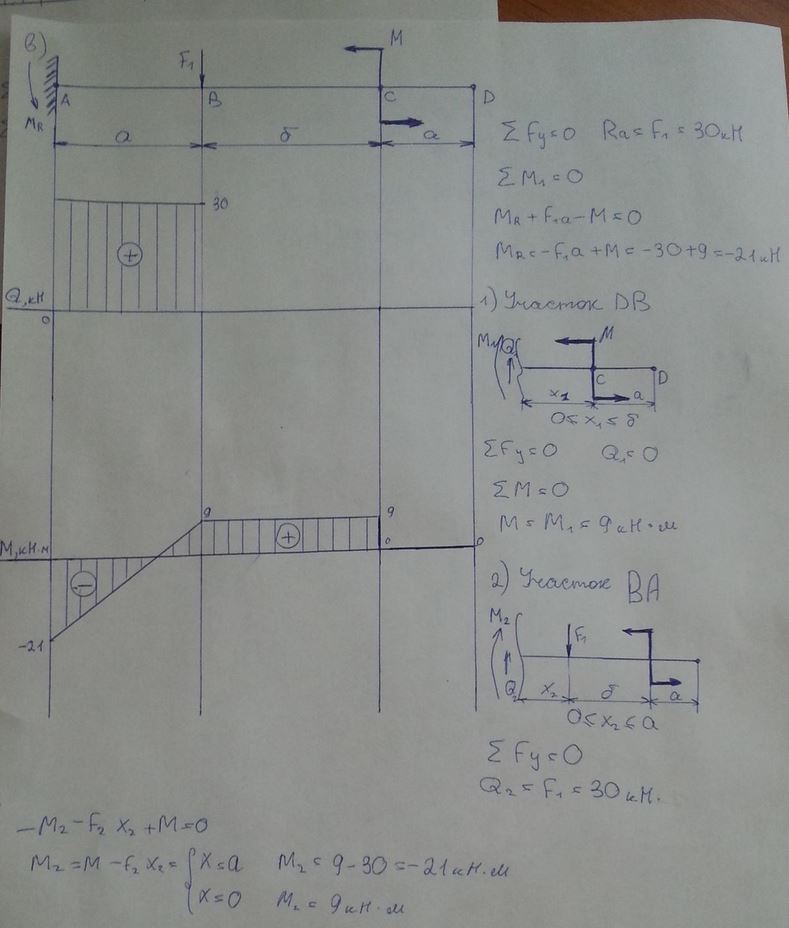 в)
F₁
M
A
B
C
D
M_R
a
б
a
30
+
Q, кН
0
9
9
+
0
0
M, кН·м
−
-21
ΣFy=0 Ra=F₁=30кН
ΣM₁=0
M_R+F₁a-M=0
M_R=-F₁a+M=-30+9=-21кН
1) Участок DB
M₁
Q₁
M
C
D
x₁
a
0≤x₁≤б
ΣFy=0 Q₁=0
ΣM=0
M=M₁=9кН·м
2) Участок BA
M₂
F₁
Q₂
x₂
б
a
0≤x₂≤a
ΣFy=0
Q₂=F₁=30кН.
-M₂-F₂x₂+M=0
M₂=M-F₂x₂={x=a M₂=9-30=-21кН·м
x=0 M₂=9кН·м